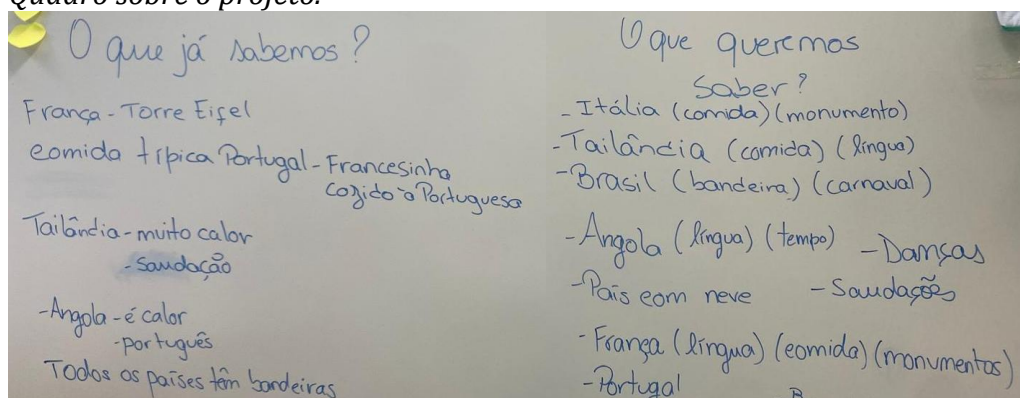 Quadro sobre o projeto.
O que já sabemos?
França - Torre Eifel
comida típica Portugal - Francesinha
cozido à Portuguesa
Tailândia - muito calor
- Saudação
- Angola - é calor
- português
Todos os países têm bandeiras
O que queremos
saber?
- Itália (comida) (monumento)
- Tailância (comida) (língua)
- Brasil (bandeira) (carnaval)
- Angola (língua) (tempo) - Danças
- País com neve - Saudações
- França (língua) (comida) (monumentos)
- Portugal